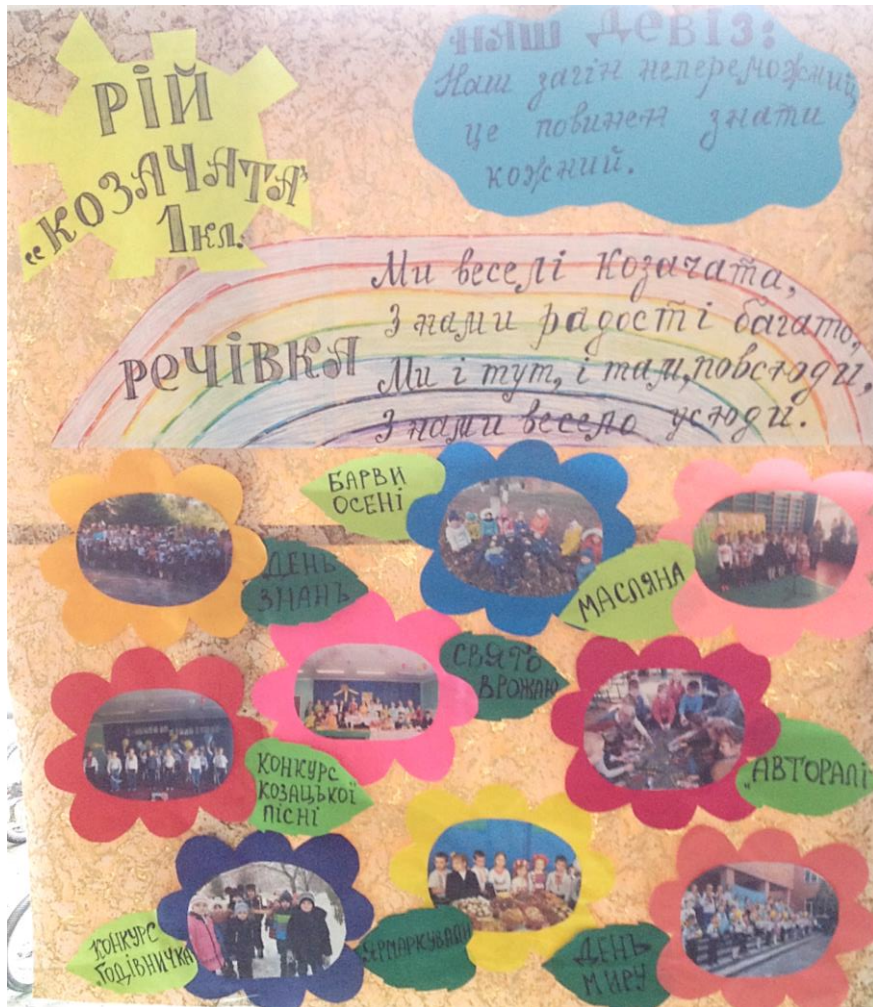 РІЙ
„КОЗАЧАТА"
1кл.
НАШ ДЕВІЗ:
Наш загін непереможний,
це повинен знати
кожний.
РЕЧІВКА
Ми веселі Козачата,
З нами радості багато,
Ми і тут, і там, повсюди,
З нами весело усюди.
ДЕНЬ
ЗНАНЬ
БАРВИ
ОСЕНІ
МАСЛЯНА
СВЯТО
ВРОЖАЮ
КОНКУРС
КОЗАЦЬКОЇ
ПІСНІ
„АВТОРАЛІ
КОНКУРС
„ГОДІВНИЧКА"
ДЕНЬ
МИРУ